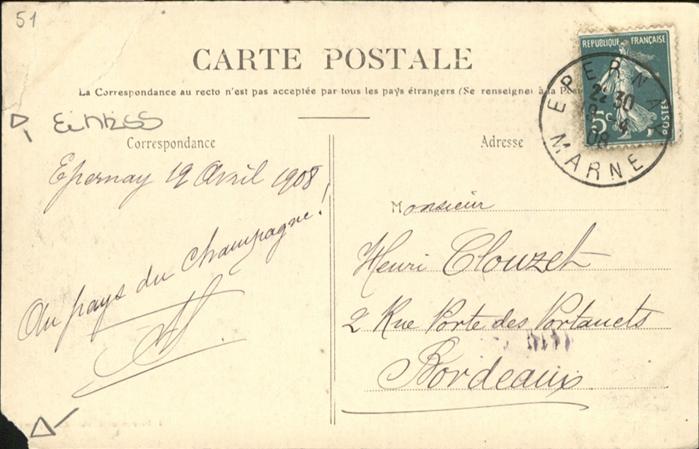 51
CARTE POSTALE
La Correspondance au recto n'est pas acceptée par tous les pays étrangers (Se renseigner à la Poste
Correspondance
Epernay 19 Avril 1908
Au pays du Champagne!
Adresse
Monsieur
Henri Clouzet
2 Rue Porte des Portanets
Bordeaux
REPUBLIQUE FRANÇAISE
5c
POSTES
EPERNAY
22 30
19 4
08
MARNE